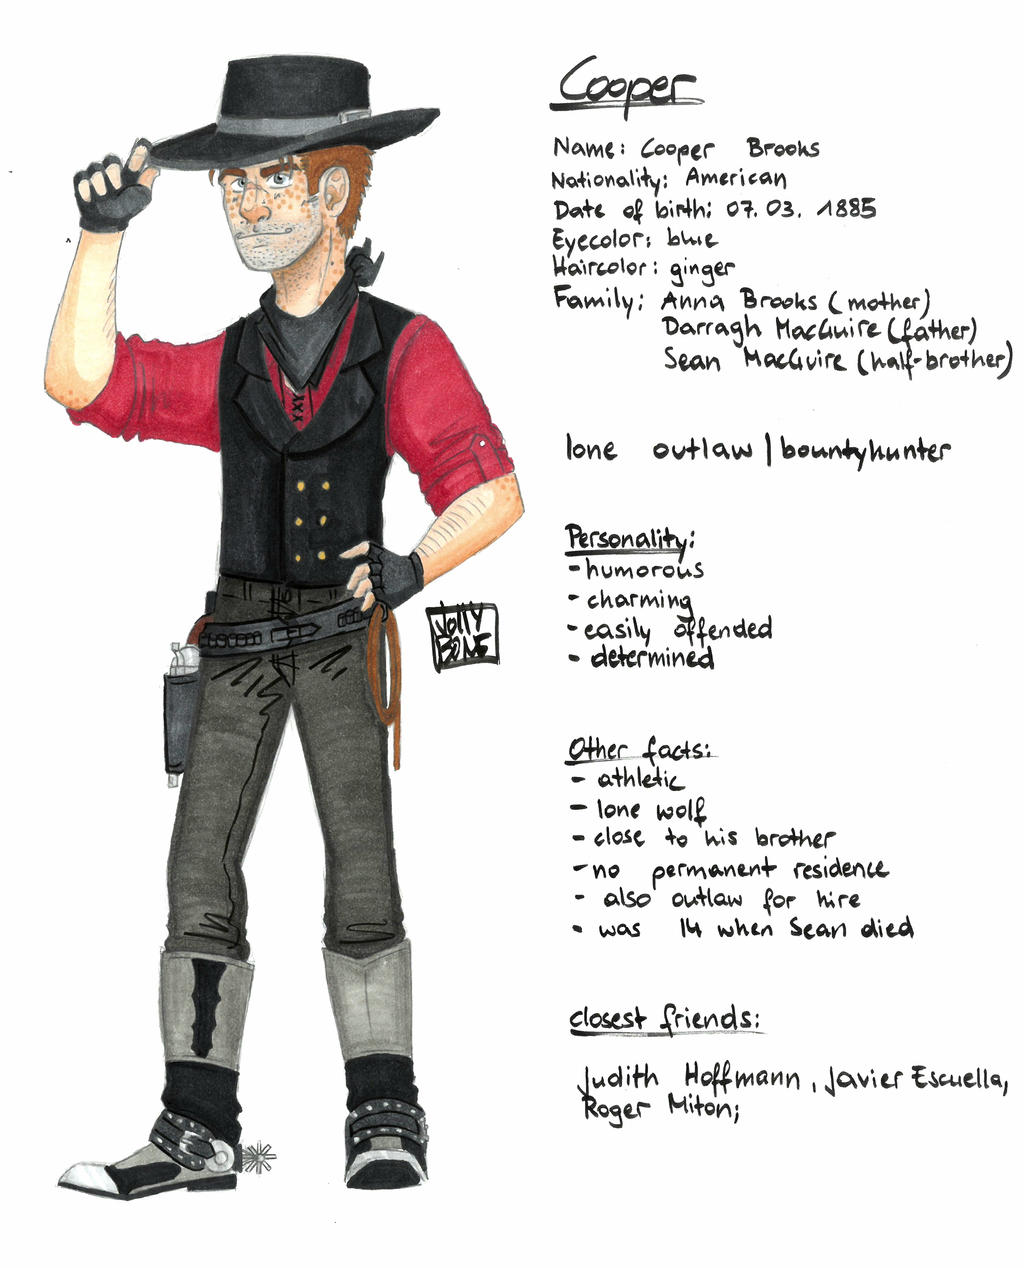 Cooper
Name: Cooper Brooks
Nationality: American
Date of birth: 07.03.1885
Eyecolor: blue
Haircolor: ginger
Family: Anna Brooks (mother)
Darragh MacGuire (father)
Sean MacGuire (half-brother)
lone outlaw | bountyhunter
Personality:
- humorous
- charming
- easily offended
- determined
JOLLY
BONE
Other facts:
- athletic
- lone wolf
- close to his brother
- no permanent residence
- also outlaw for hire
- was 14 when Sean died
closest friends:
Judith Hoffmann, Javier Escuella,
Roger Miton;